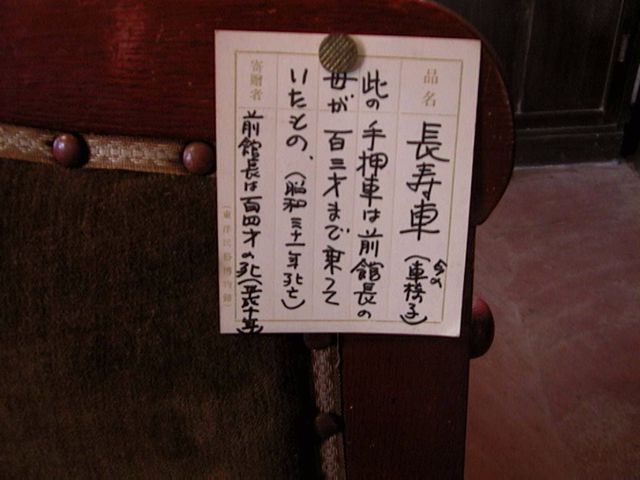 品名
長寿車(今の車椅子)
此の手押車は前館長の
母が百三才まで乗って
いたもの、(昭和三十一年死亡)
寄贈者
前館長は百四才の死(平成十年)
(東洋民俗博物館)